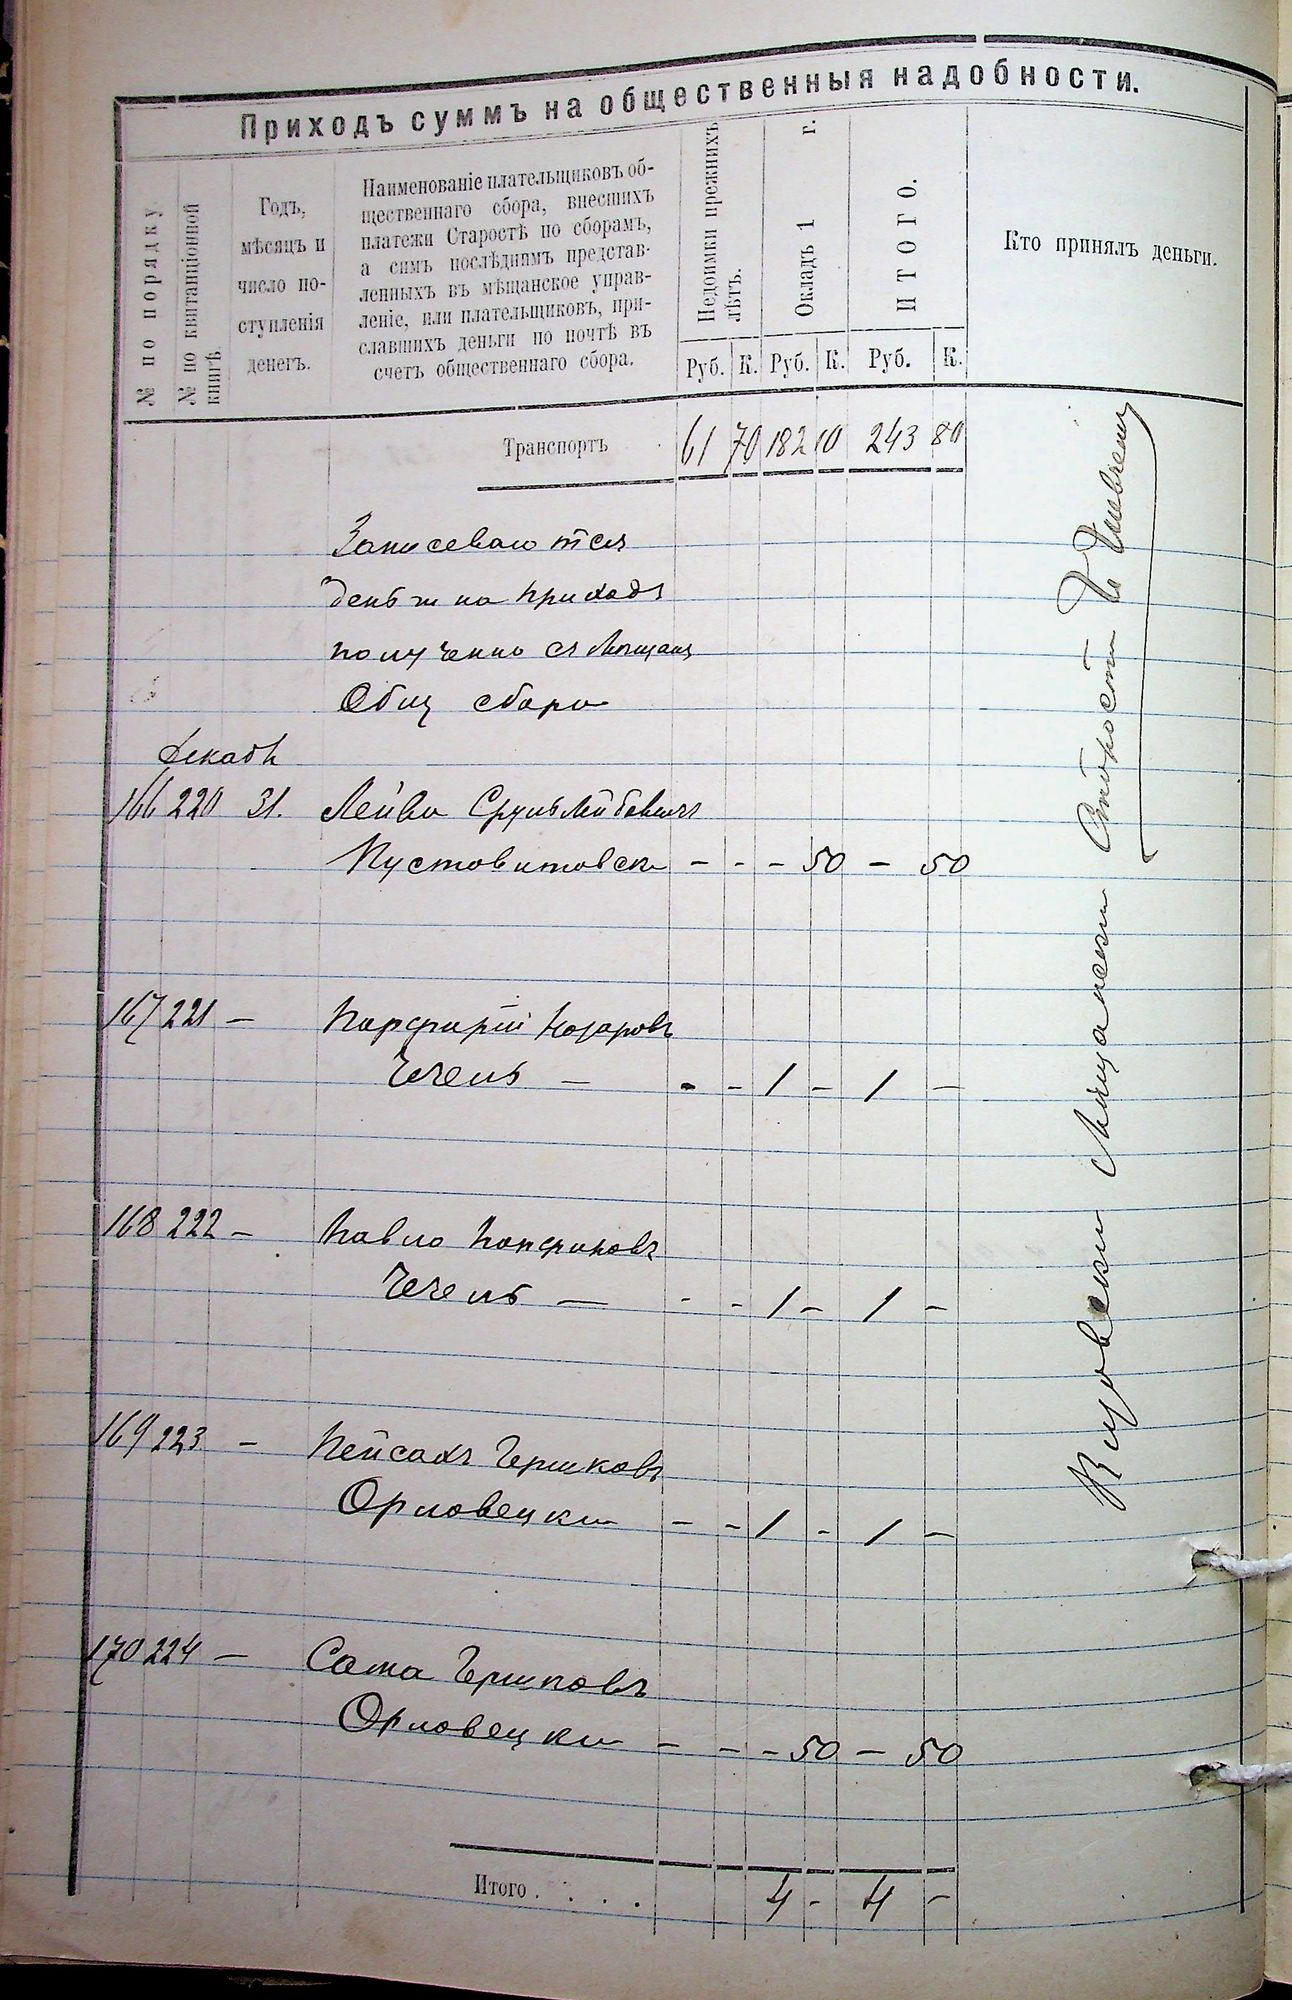 Приходъ суммъ на общественныя надобности.
№ по порядку.
№ по квитанціонной
книгѣ.
Годъ,
мѣсяцъ и
число по-
ступленія
денегъ.
Наименованіе плательщиковъ об-
щественнаго сбора, внесшихъ
платежи Старостѣ по сборамъ,
а симъ послѣднимъ представ-
ленныхъ въ мѣщанское управ-
леніе, или плательщиковъ, при-
славшихъ деньги по почтѣ въ
счетъ общественнаго сбора.
Недоимки прежнихъ
лѣтъ.
Окладъ 1 г.
ИТОГО.
Кто принялъ деньги.
Руб. К. Руб. К. Руб. К.
Транспортъ 61 70 182 10 243 80
Записеваются
деньги на приходъ
получени съ Мещан
Общ сбори
Декабь
166 220 31. Лейва Срульлейбовичъ
Пустовитовски - - - 50 - 50
167 221 - Порфирій Назаровъ
Чечель - - - 1 - 1 -
168 222 - Павло Порфировъ
Чечель - - - 1 - 1 -
169 223 - Пейсахъ Гершковъ
Орловецки - - 1 - 1 -
170 224 - Гершковъ
Орловецки - - - 50 - 50
Итого . . . . 4 - 4 -
Мещански Староста